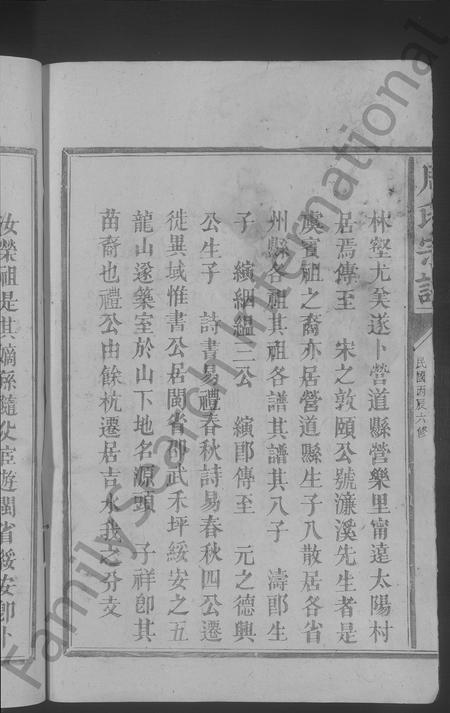 周氏宗譜
民國丙辰六修
林壑尤美遂卜營道縣營樂里甯遠太陽村
居焉傳至　宋之敦頤公號濂溪先生者是
虞賓祖之裔亦居營道縣生子八散居各省
州縣各祖其祖各譜其譜其八子　濤郎生
子　縯絪緼三公　縯郎傳至　元之德興
公生子　詩書易禮春秋詩易春秋四公遷
徙異域惟書公居閩省邵武禾坪綏安之五
龍山遂築室於山下地名源頭　子祥卽其
苗裔也禮公由餘杭遷居吉水我之分支
汝榮祖是其嫡孫隨父宦遊閩省綏安卽卜
FamilySearch International